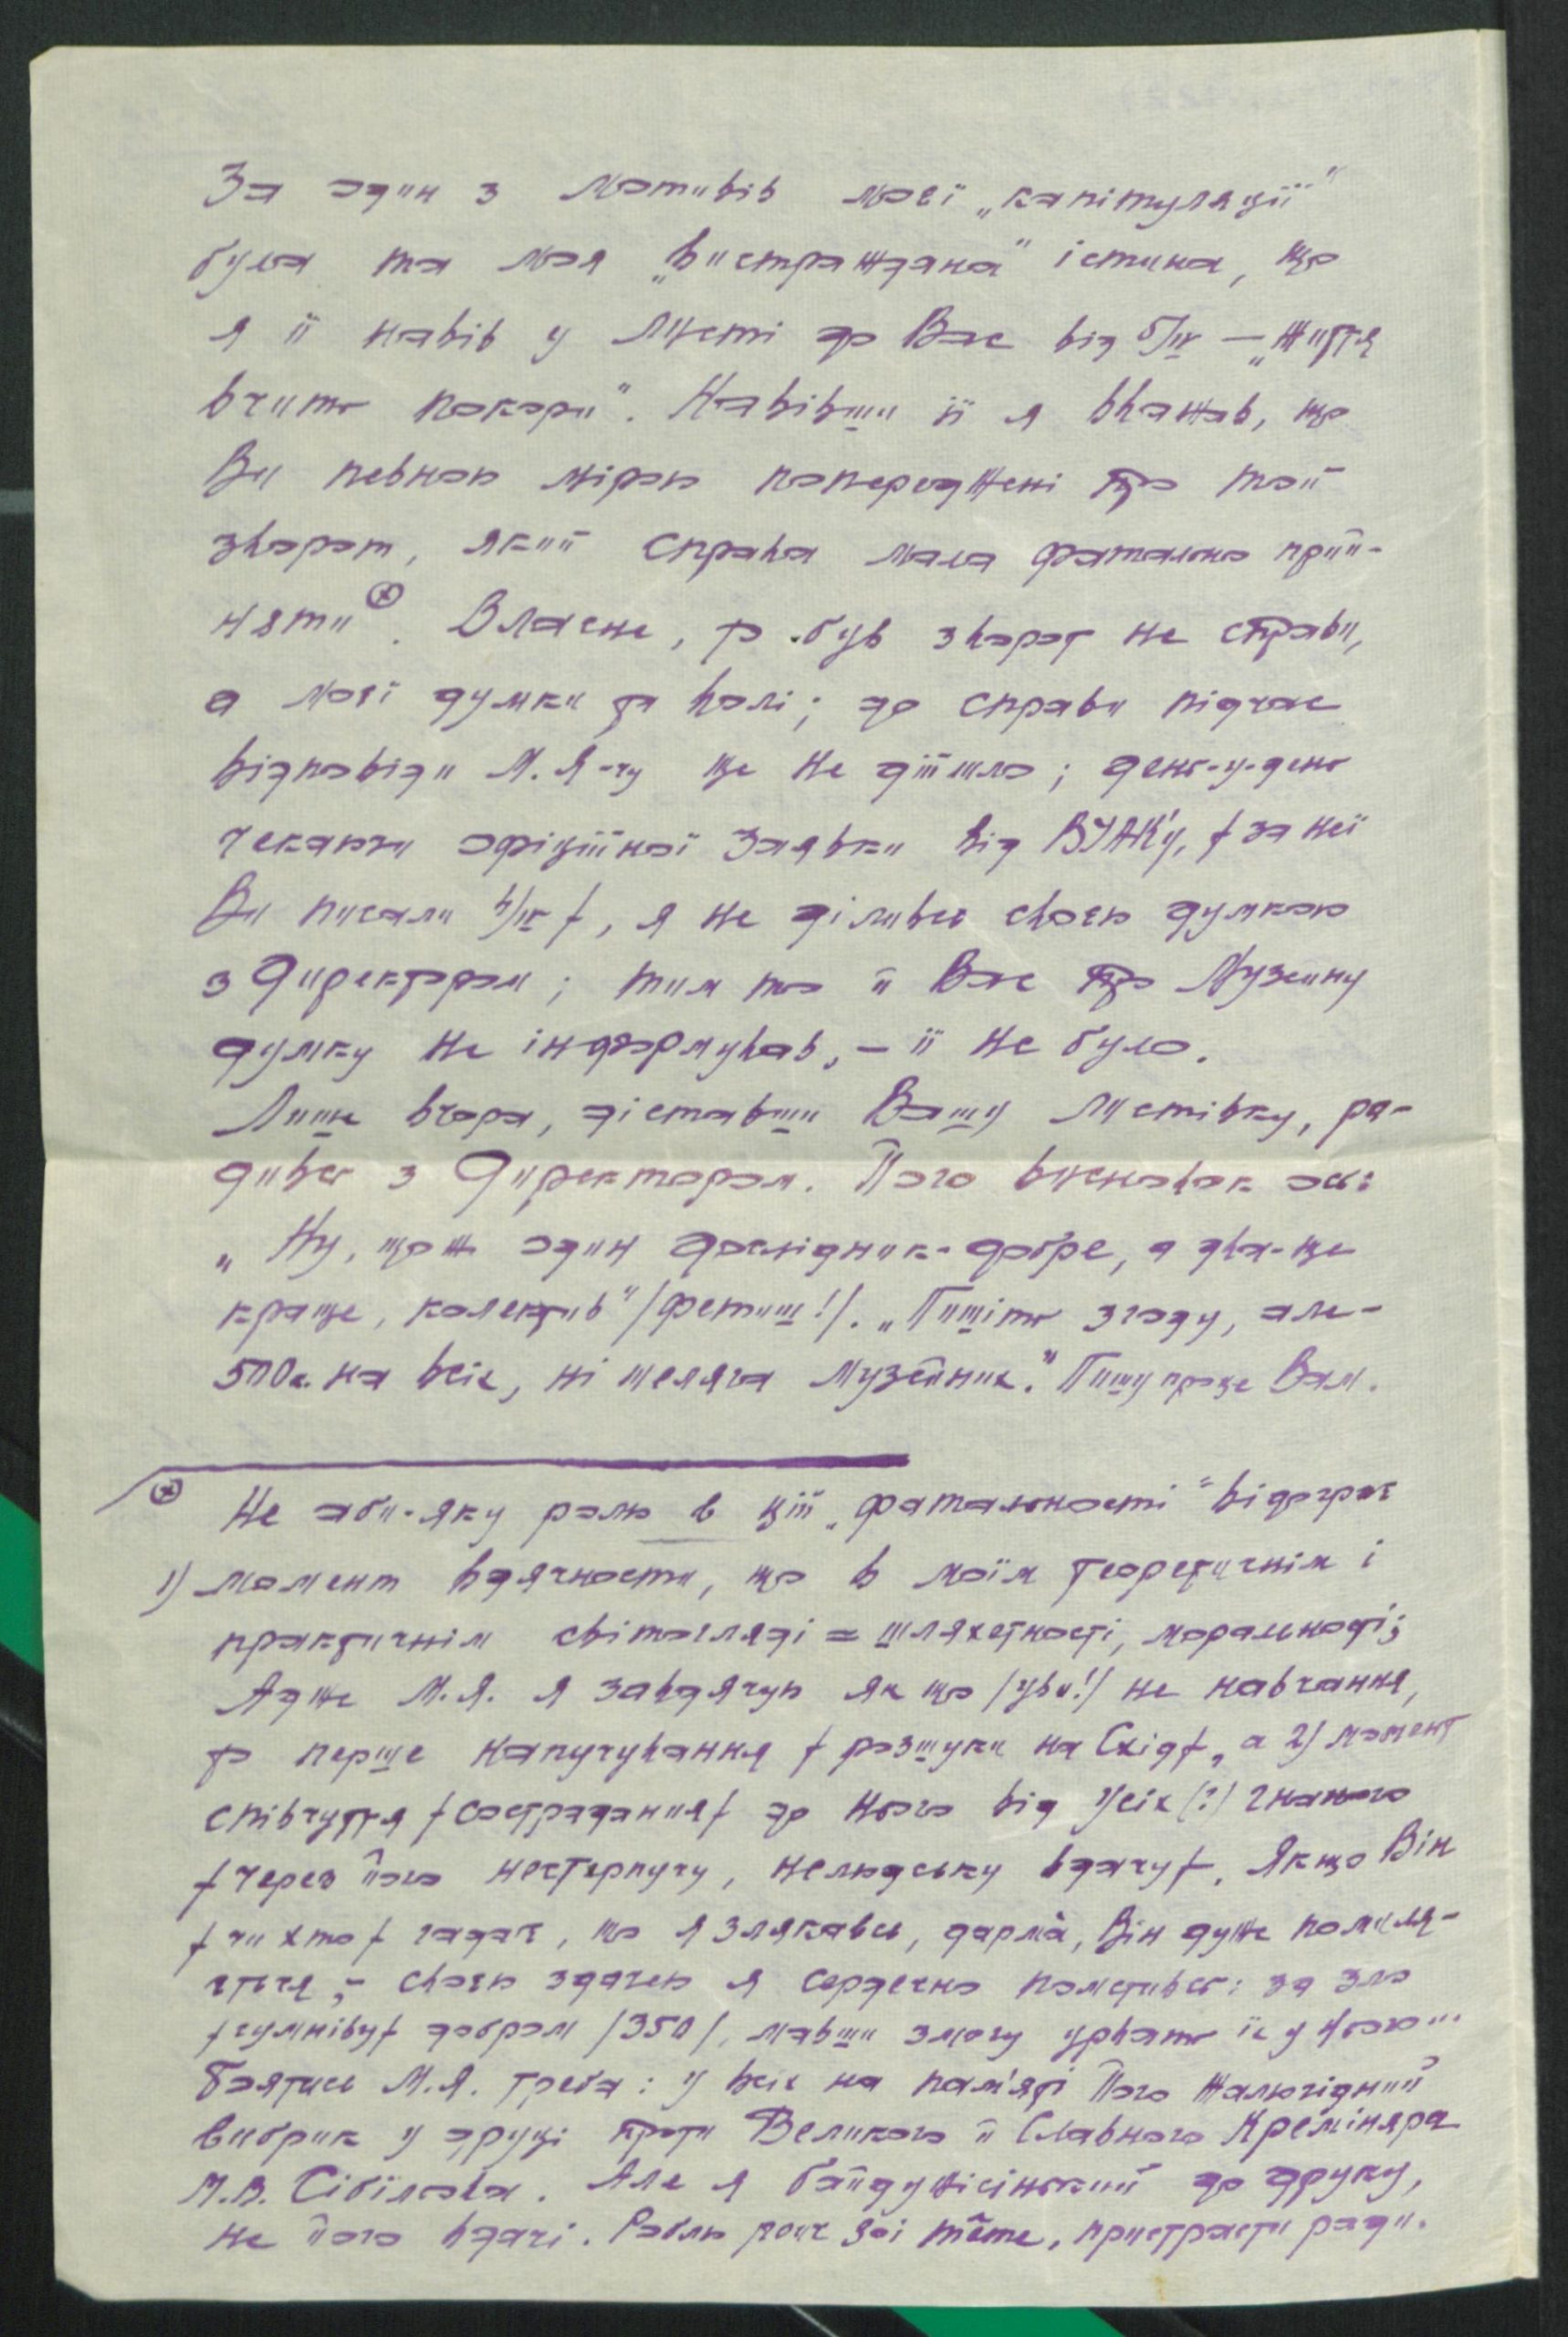 За один з мотивів моєї „капітуляції"
була та моя „вистраждана" істина, що
я її навів у листі до Вас від 6/IV — „життя
вчить покори". Навівши її я вважав, що
Ви певною мірою попереджені про той
зворот, який справа мала фатально прий-
няти ⊗. Власне, то був зворот не справи,
а моєї думки та волі; до справи підчас
відповіди М.Я-чу ще не дійшло; день-у-день
чекаючи офіційної заявки від ВУАК'у, /за неї
Ви писали 4/IV/, я не діливсь своєю думкою
з Директором; тим то й Вас про Музейну
думку не інформував, – її не було.
Лише вчора, діставши Вашу листівку, ра-
дивсь з Директором. Його висновок ось:
„Ну, що ж один дослідник- добре, а два- ще
краще, колектив" /фетиш!/. „Пишіть згоду, але-
500к. на всіх, ні шеляга музейних." Пишу про це Вам.
⊗ Не аби-яку ролю в цій „фатальности" відограє
1) момент вдячности, що в моїм теоретичнім і
практичнім світогляді = шляхетності, моральності;
Адже М.Я. я завдячую як що /увы!/ не навчання,
то перше напучування /розшуки на Схід/, а 2) момент
співчуття /сострадания/ до нього від усіх (?) гнаного
/через його нестерпучу, нелюдську вдачу/. Якщо Він
/чи хто/ гадає, що я злякавсь, дарма, Він дуже помиля-
ється, – своєю здачею я сердечно помстивсь: за зло
/сумніву/ добром /350/, мавши змогу урвать їх у нього...
Боятись М.Я. треба: у всіх на пам'яті його жалюгідний
вибрик у друці проти Великого й Славного Креміняра
М.В. Сібільова. Але я байдужісінький до друку,
не його вдачі. Роблю pour soi même, пристрасти ради.